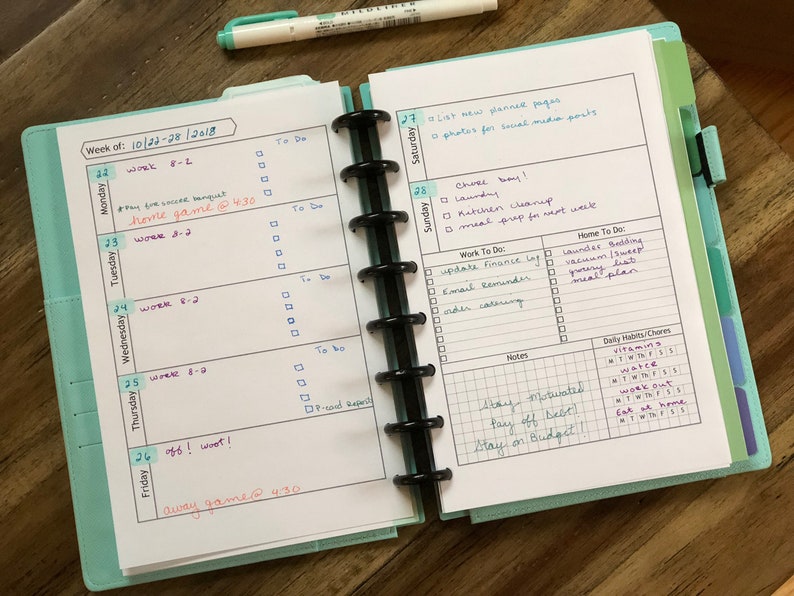 MILDLINER
Week of: 10/22-28/2018
22
Monday
work 8-2
To Do
*Pay for soccer banquet
home game @ 4:30
23
Tuesday
work 8-2
To Do
24
Wednesday
work 8-2
To Do
25
Thursday
work 8-2
To Do
P-card Report
26
Friday
off! woot!
away game @ 4:30
27
Saturday
List New planner pages
photos for social media posts
28
Sunday
Chore Day!
Laundry
Kitchen cleanup
meal prep for next week
Work To Do:
update Finance Log
Email Reminder
order catering
Home To Do:
Launder Bedding
vacuum/sweep
grocery list
meal plan
Notes
Stay Motivated
Pay off Debt!
Stay on Budget!
Daily Habits/Chores
vitamins
M T W Th F S S
water
M T W Th F S S
work out
M T W Th F S S
Eat at home
M T W Th F S S